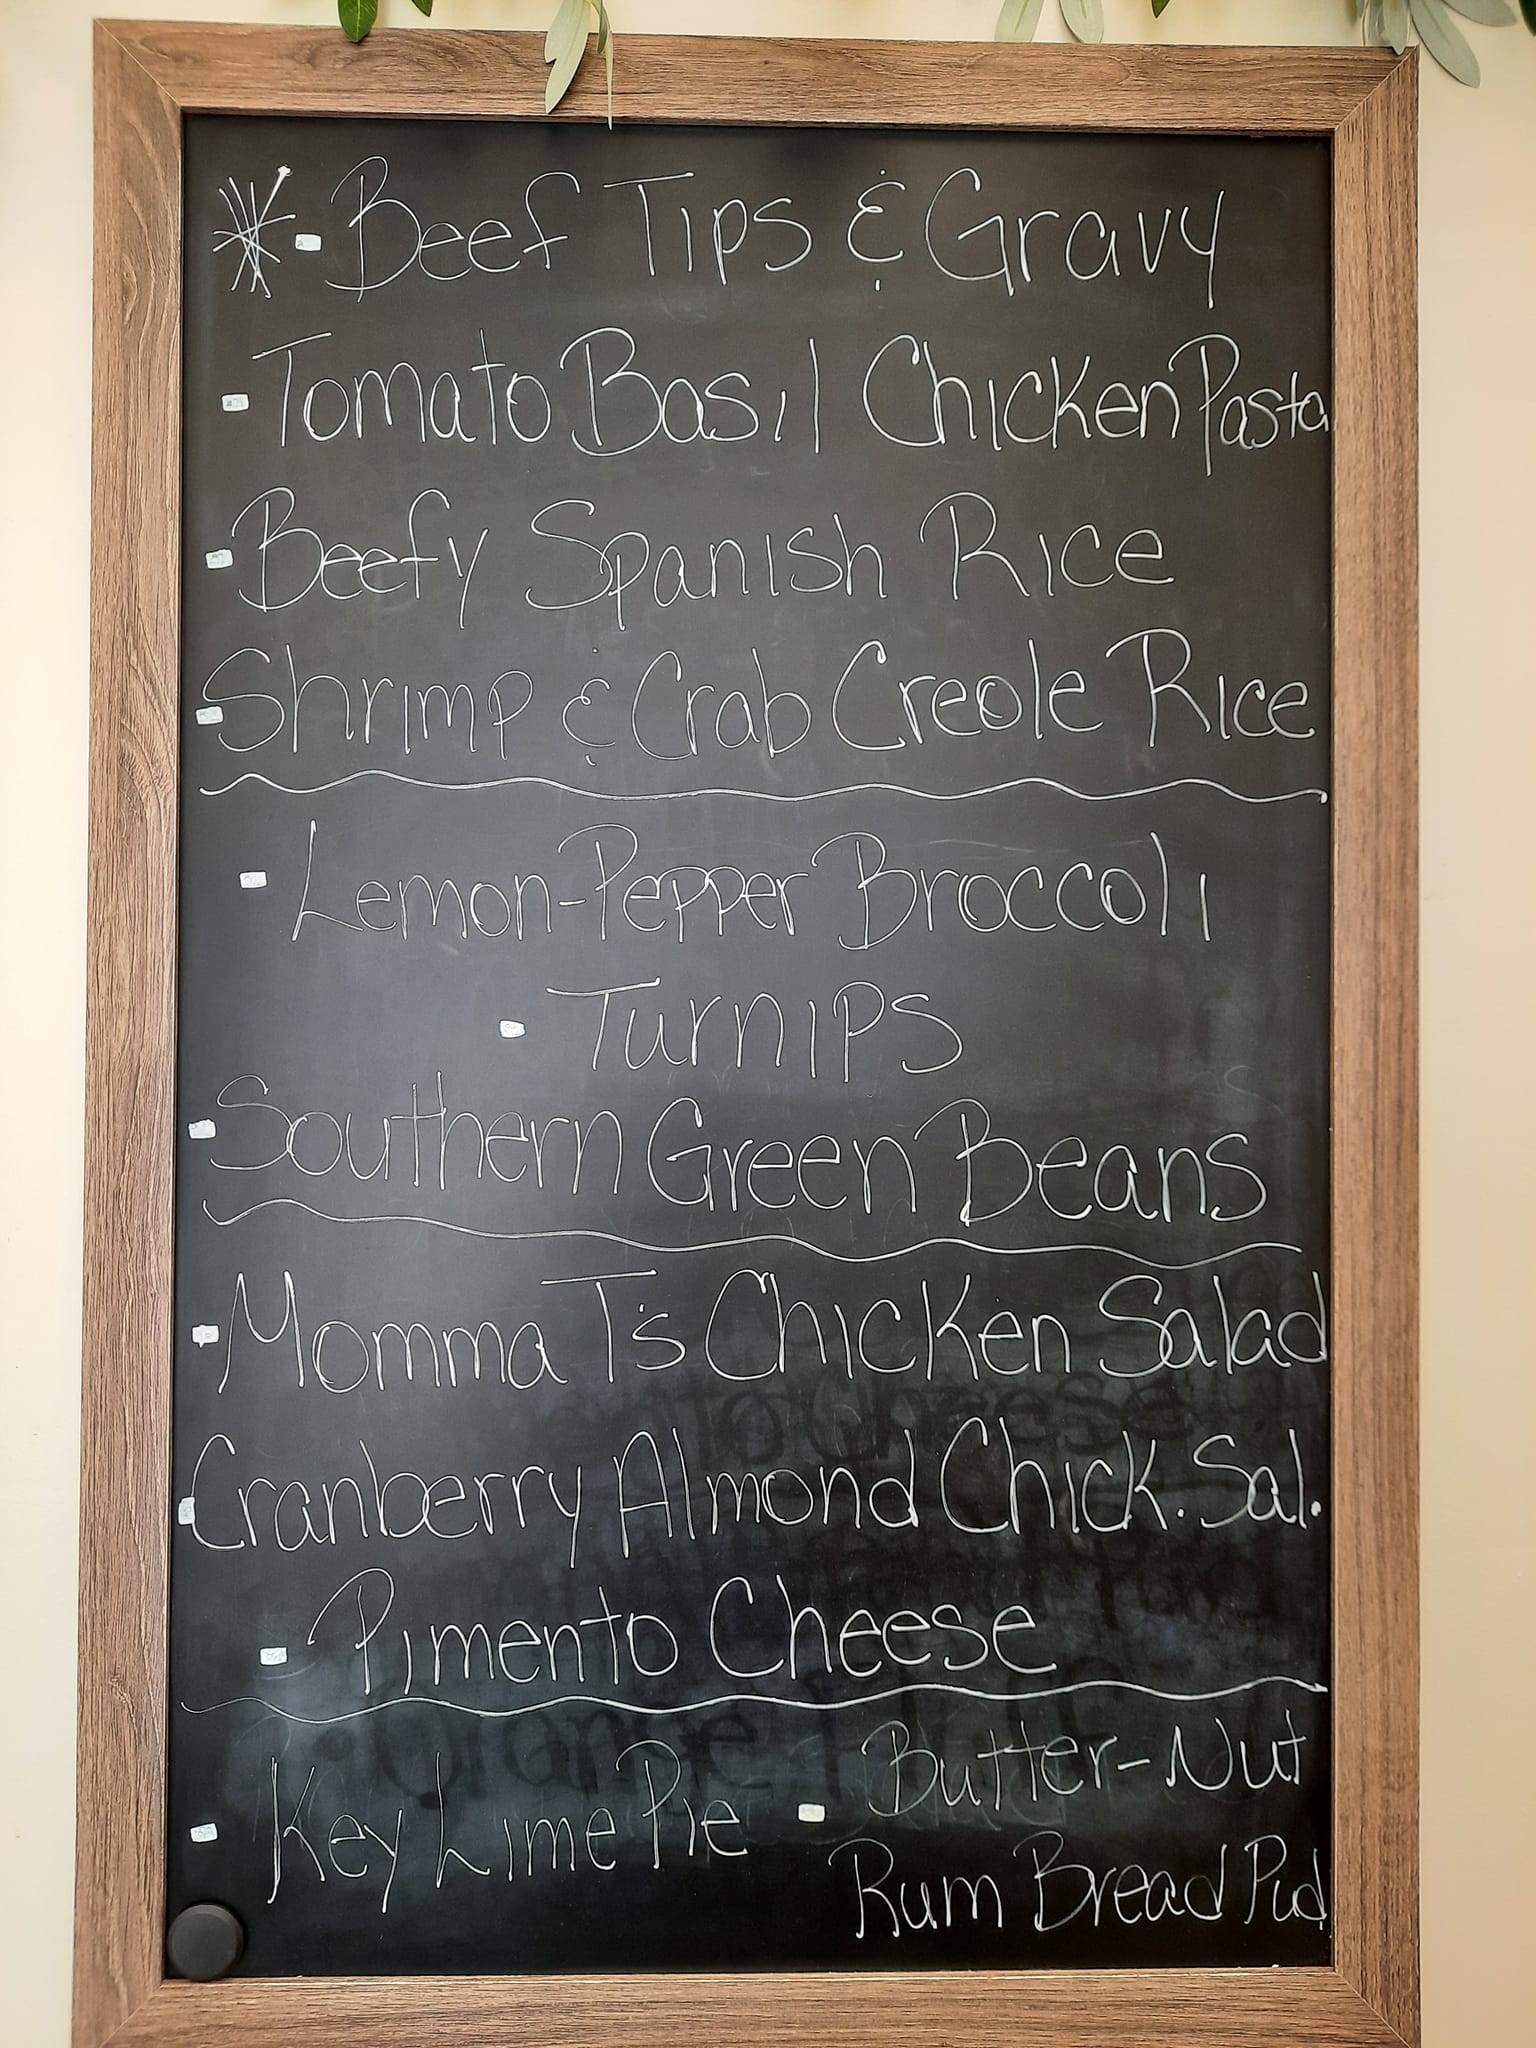 * · Beef Tips & Gravy
· Tomato Basil Chicken Pasta
· Beefy Spanish Rice
· Shrimp & Crab Creole Rice
· Lemon-Pepper Broccoli
· Turnips
· Southern Green Beans
· Momma T's Chicken Salad
· Cranberry Almond Chick. Sal.
· Pimento Cheese
· Key Lime Pie
· Butter-Nut
Rum Bread Pud